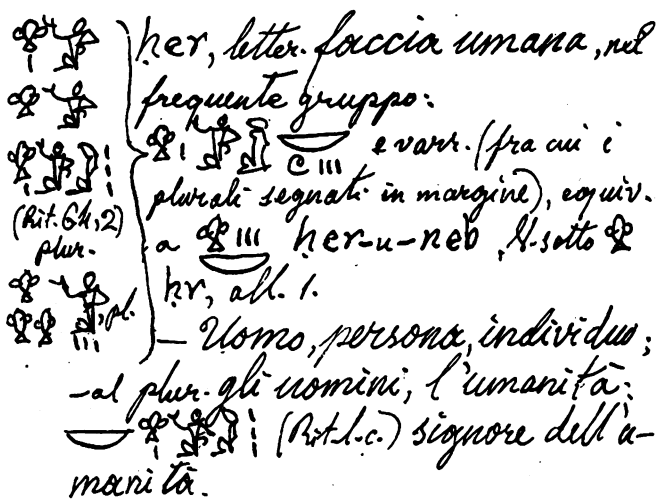 ḥer, letter. faccia umana, nel
frequente gruppo:
e varr. (fra cui i
(Rit. 64, 2)
plurali segnati in margine), equiv.
plur.
a ḥer-u-neb, V. sotto
ḥr, all. 1.
, pl.
— Uomo, persona, individuo;
— al plur. gli uomini, l'umanità;
(Rit. l. c.) signore dell'u-
manità.